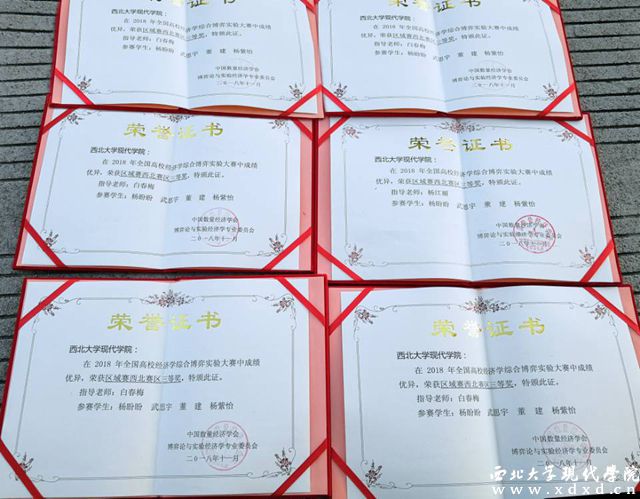 荣誉证书
西北大学现代学院：
在 2018 年全国高校经济学综合博弈实验大赛中成绩
优异，荣获区域赛西北赛区三等奖，特颁此证。
指导老师：白春梅
参赛学生：杨盼盼 武思宇 董 建 杨紫怡
中国数量经济学会
博弈论与实验经济学专业委员会
二〇一八年十一月
荣誉证书
西北大学现代学院：
在 2018 年全国高校经济学综合博弈实验大赛中成绩
优异，荣获区域赛西北赛区三等奖，特颁此证。
指导老师：白春梅
参赛学生：杨盼盼 武思宇 董 建 杨紫怡
中国数量经济学会
博弈论与实验经济学专业委员会
二〇一八年十一月
荣誉证书
西北大学现代学院：
在 2018 年全国高校经济学综合博弈实验大赛中成绩
优异，荣获区域赛西北赛区三等奖，特颁此证。
指导老师：白春梅
参赛学生：杨盼盼 武思宇 董 建 杨紫怡
中国数量经济学会
博弈论与实验经济学专业委员会
二〇一八年十一月
荣誉证书
西北大学现代学院：
在 2018 年全国高校经济学综合博弈实验大赛中成绩
优异，荣获区域赛西北赛区三等奖，特颁此证。
指导老师：杨江丽
参赛学生：杨盼盼 武思宇 董 建 杨紫怡
中国数量经济学会
博弈论与实验经济学专业委员会
二〇一八年十一月
荣誉证书
西北大学现代学院：
在 2018 年全国高校经济学综合博弈实验大赛中成绩
优异，荣获区域赛西北赛区三等奖，特颁此证。
指导老师：白春梅
参赛学生：杨盼盼 武思宇 董 建 杨紫怡
中国数量经济学会
博弈论与实验经济学专业委员会
二〇一八年十一月
荣誉证书
西北大学现代学院：
在 2018 年全国高校经济学综合博弈实验大赛中成绩
优异，荣获区域赛西北赛区三等奖，特颁此证。
指导老师：白春梅
参赛学生：杨盼盼 武思宇 董 建 杨紫怡
中国数量经济学会
博弈论与实验经济学专业委员会
二〇一八年十一月
西北大学现代学院
www.xdxd.cn